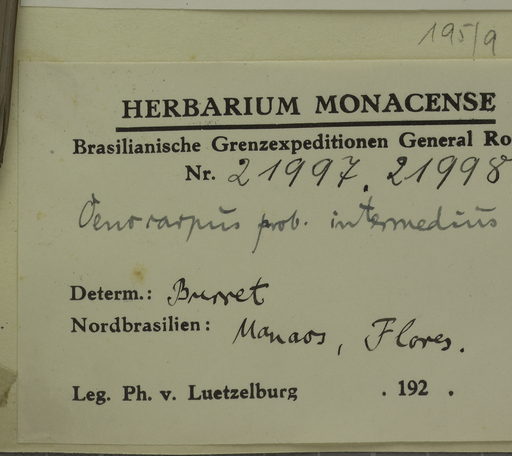 195/9
HERBARIUM MONACENSE
Brasilianische Grenzexpeditionen General Ro
Nr. 21997, 21998
Oenocarpus prob. intermedius
Determ.: Burret
Nordbrasilien: Manaos, Flores.
Leg. Ph. v. Luetzelburg . 192 .